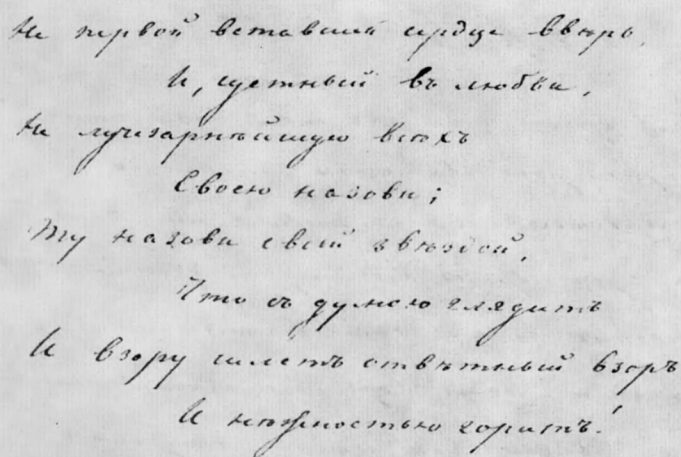 Не первой вставшей сердце ввѣрь,
И, суетный въ любви,
Не лучезарнѣйшую всѣхъ
Своею назови;
Ту назови своей звѣздой,
Что съ думою глядитъ
И взору шлетъ отвѣтный взоръ
И нѣжностью горитъ!